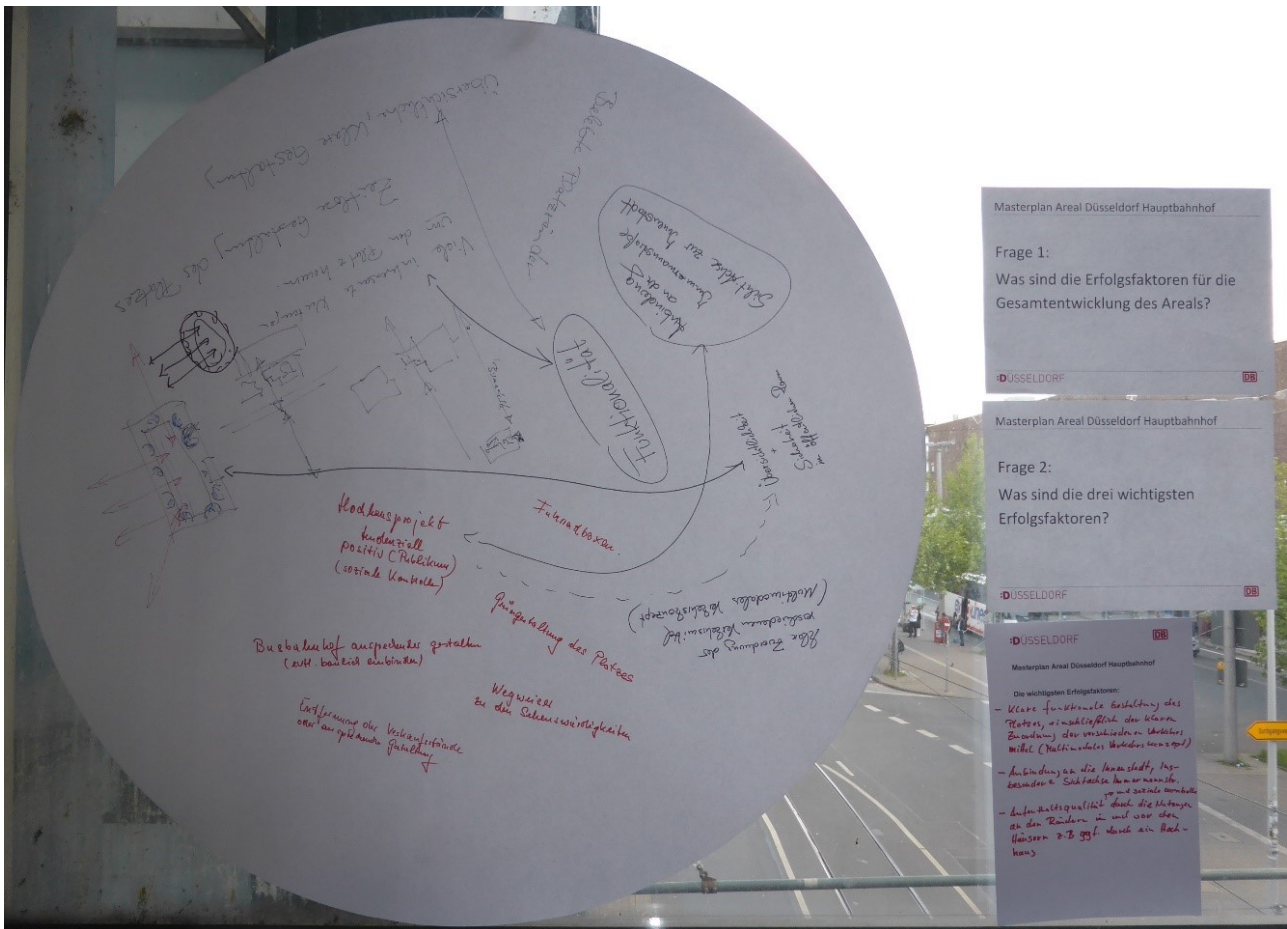 Übersichtliche, klare Gestaltung
Zeitlose Gestaltung des Platzes
Viele interessante
um den Platz herum.
Belebte Platzränder
Anbindung
an die
Immermannstraße
Sichtachse zur Innenstadt
Funktionalität
Sicherheit
+
Übersichtlichkeit
im öffentlichen Raum
Klare Zuordnung der
verschiedenen Verkehrsmittel
(Multimodales Verkehrskonzept)
Hochhausprojekt
tendenziell
positiv (Publikum)
(soziale Kontrolle)
Fahrradboxen.
Grüngestaltung des Platzes
Busbahnhof ansprechender gestalten
(evtl. baulich einbinden)
Wegweiser
zu den Sehenswürdigkeiten
Entfernung der Verkaufsstände
oder ansprechende Gestaltung
Masterplan Areal Düsseldorf Hauptbahnhof
Frage 1:
Was sind die Erfolgsfaktoren für die
Gesamtentwicklung des Areals?
:DÜSSELDORF DB
Masterplan Areal Düsseldorf Hauptbahnhof
Frage 2:
Was sind die drei wichtigsten
Erfolgsfaktoren?
:DÜSSELDORF DB
:DÜSSELDORF DB
Masterplan Areal Düsseldorf Hauptbahnhof
Die wichtigsten Erfolgsfaktoren:
- Klare funktionale Gestaltung des
Platzes, einschließlich der klaren
Zuordnung der verschiedenen Verkehrs
mittel (Multimodales Verkehrskonzept)
- Anbindung an die Innenstadt, ins-
besondere Sichtachse Immermannstr.
- Aufenthaltsqualität und soziale Kontrolle durch die Nutzungen
an den Rändern in und vor den
Häusern z.B ggf. durch ein Hoch-
haus